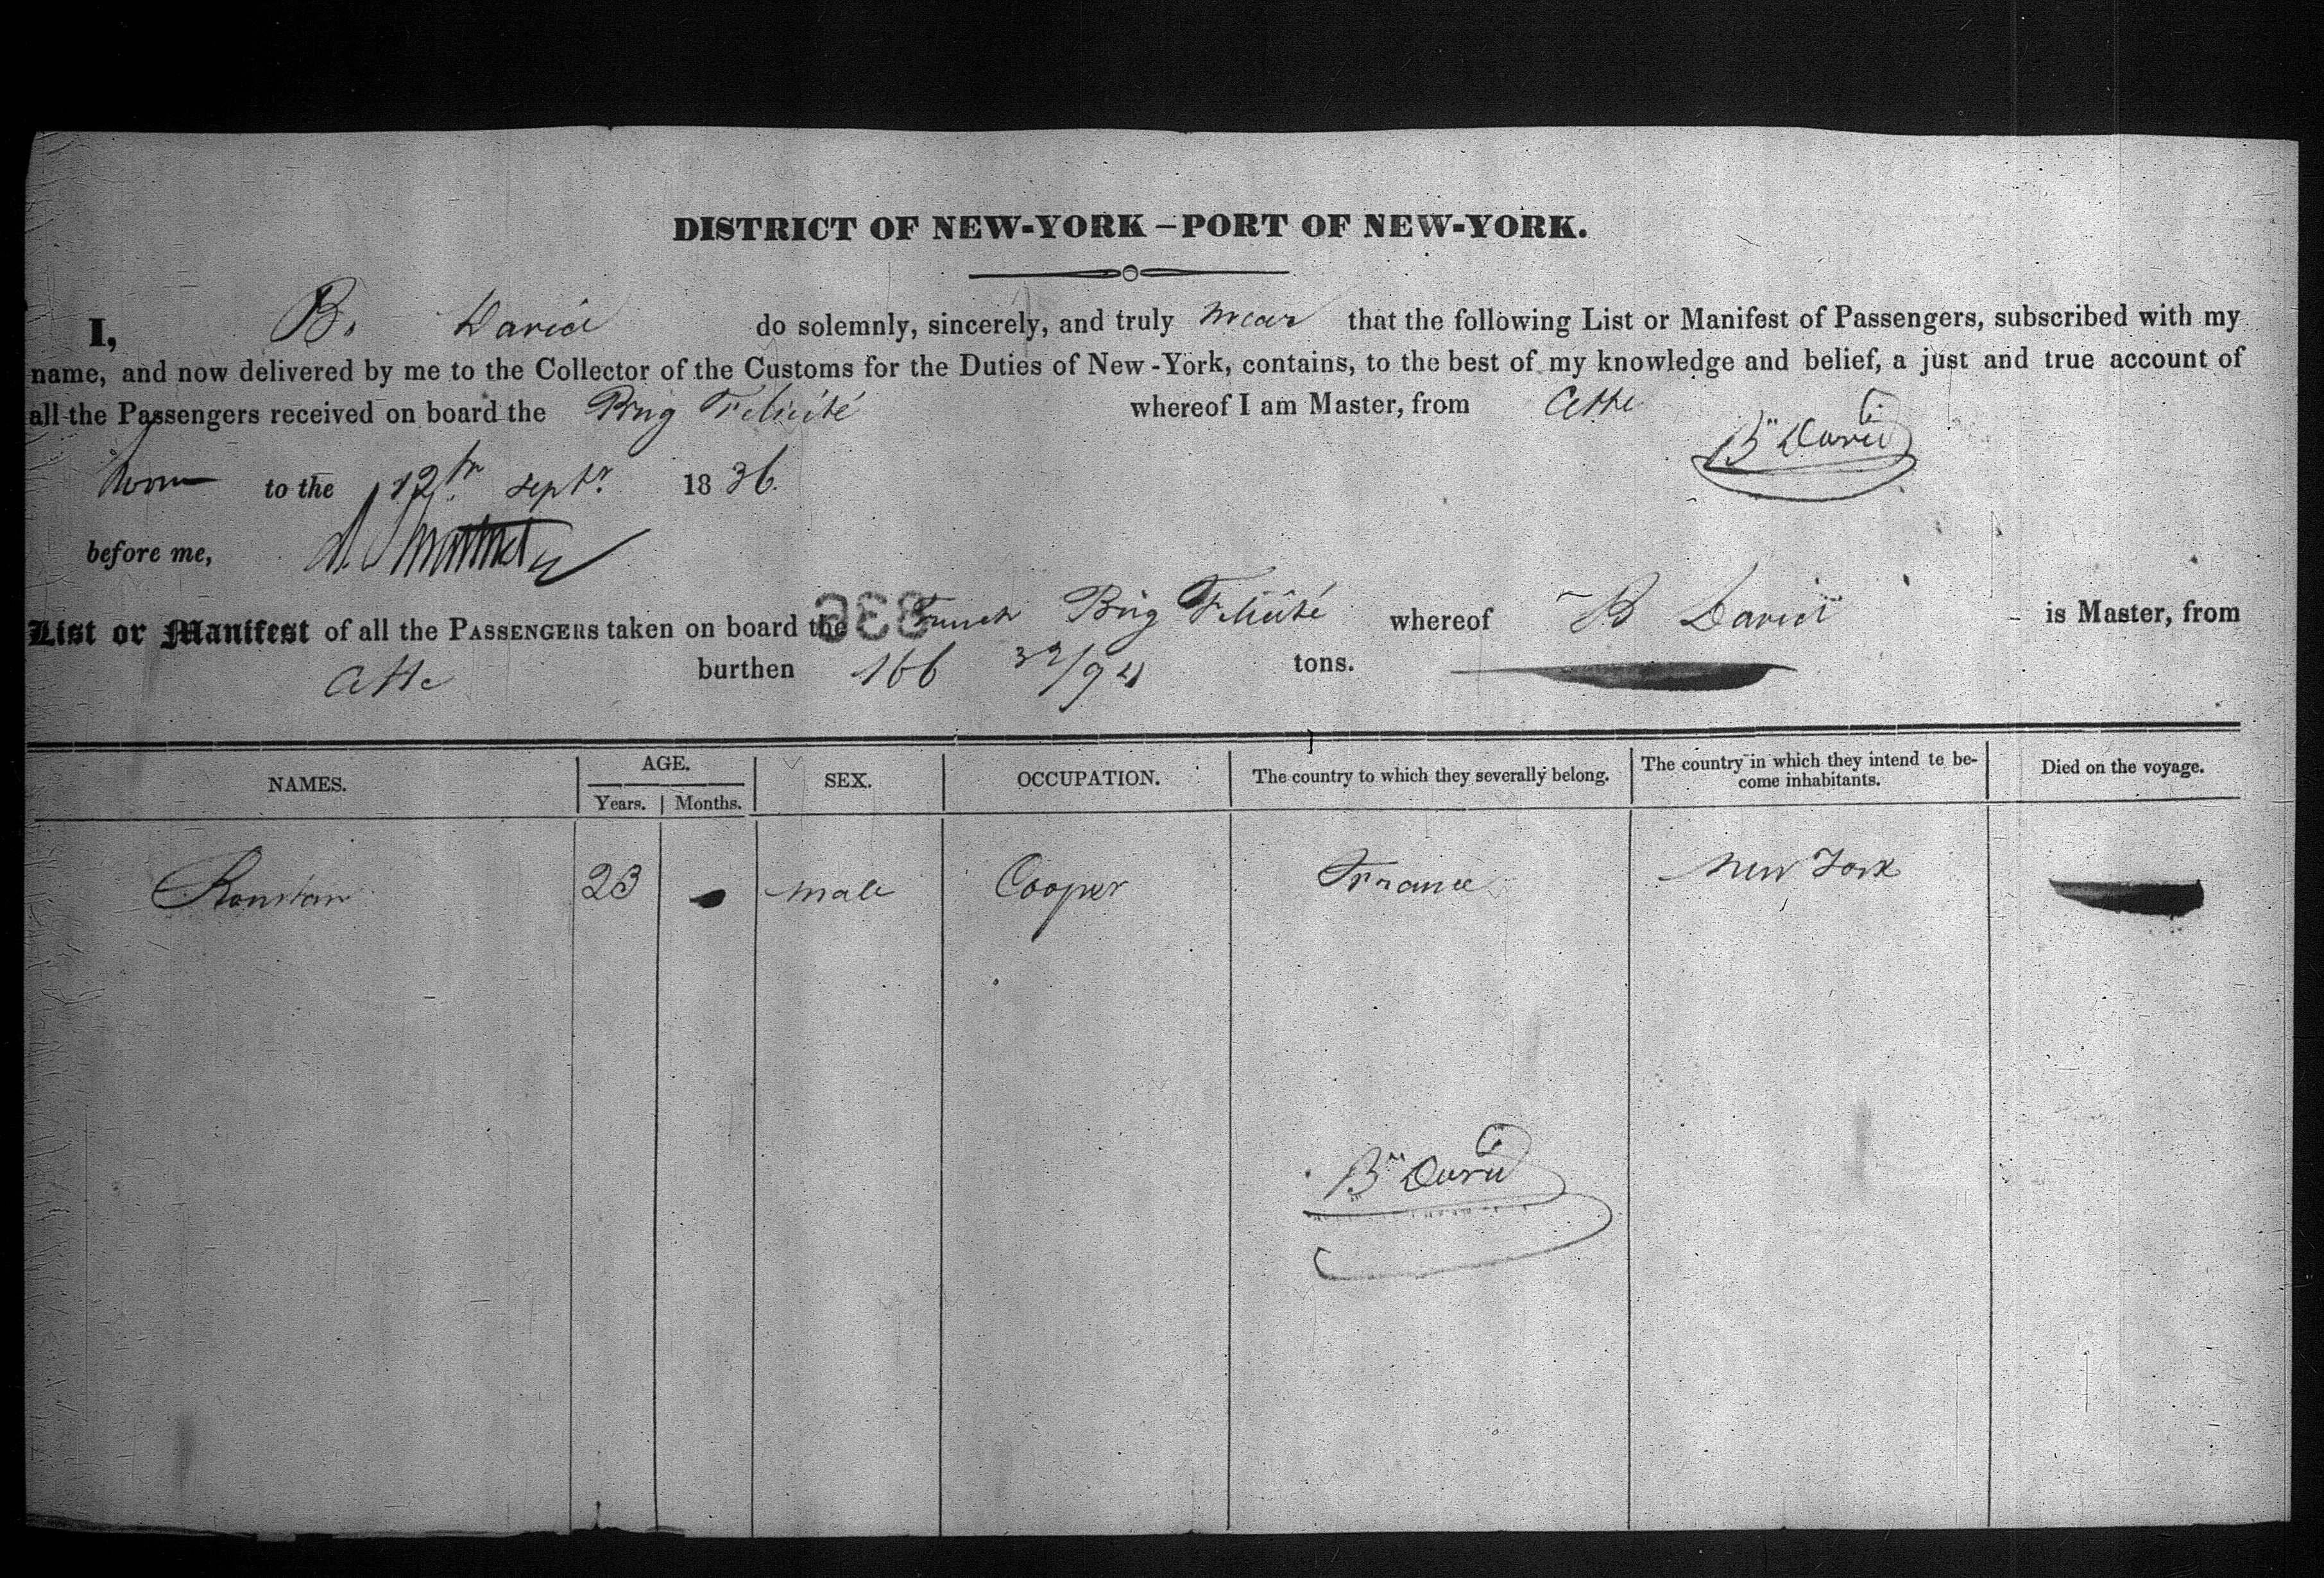 DISTRICT OF NEW-YORK – PORT OF NEW-YORK.
I, B. David do solemnly, sincerely, and truly swear that the following List or Manifest of Passengers, subscribed with my
name, and now delivered by me to the Collector of the Customs for the Duties of New-York, contains, to the best of my knowledge and belief, a just and true account of
all the Passengers received on board the Brig Félicité whereof I am Master, from Cette
Bn David
Sworn to the 12th Septr. 1836.
before me,
List or Manifest of all the PASSENGERS taken on board the French Brig Félicité whereof B David is Master, from
Cette burthen 166 32/94 tons.
NAMES. AGE. SEX. OCCUPATION. The country to which they severally belong. The country in which they intend to be-
come inhabitants. Died on the voyage.
Years. Months.
23 male Cooper France New York
Bn David